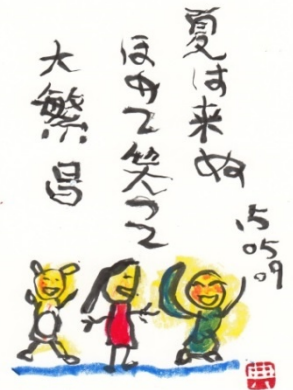 夏は来ぬ
ほめて笑って
大繁昌
15.05.09
典